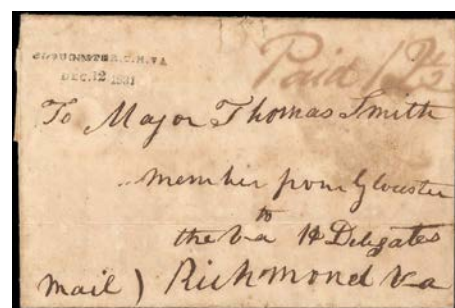 GLOUCESTER.C.H.VA
DEC.12 1831
Paid 12½
To Major Thomas Smith
member from Gloucester
to
the Va H Delegates
mail) Richmond Va